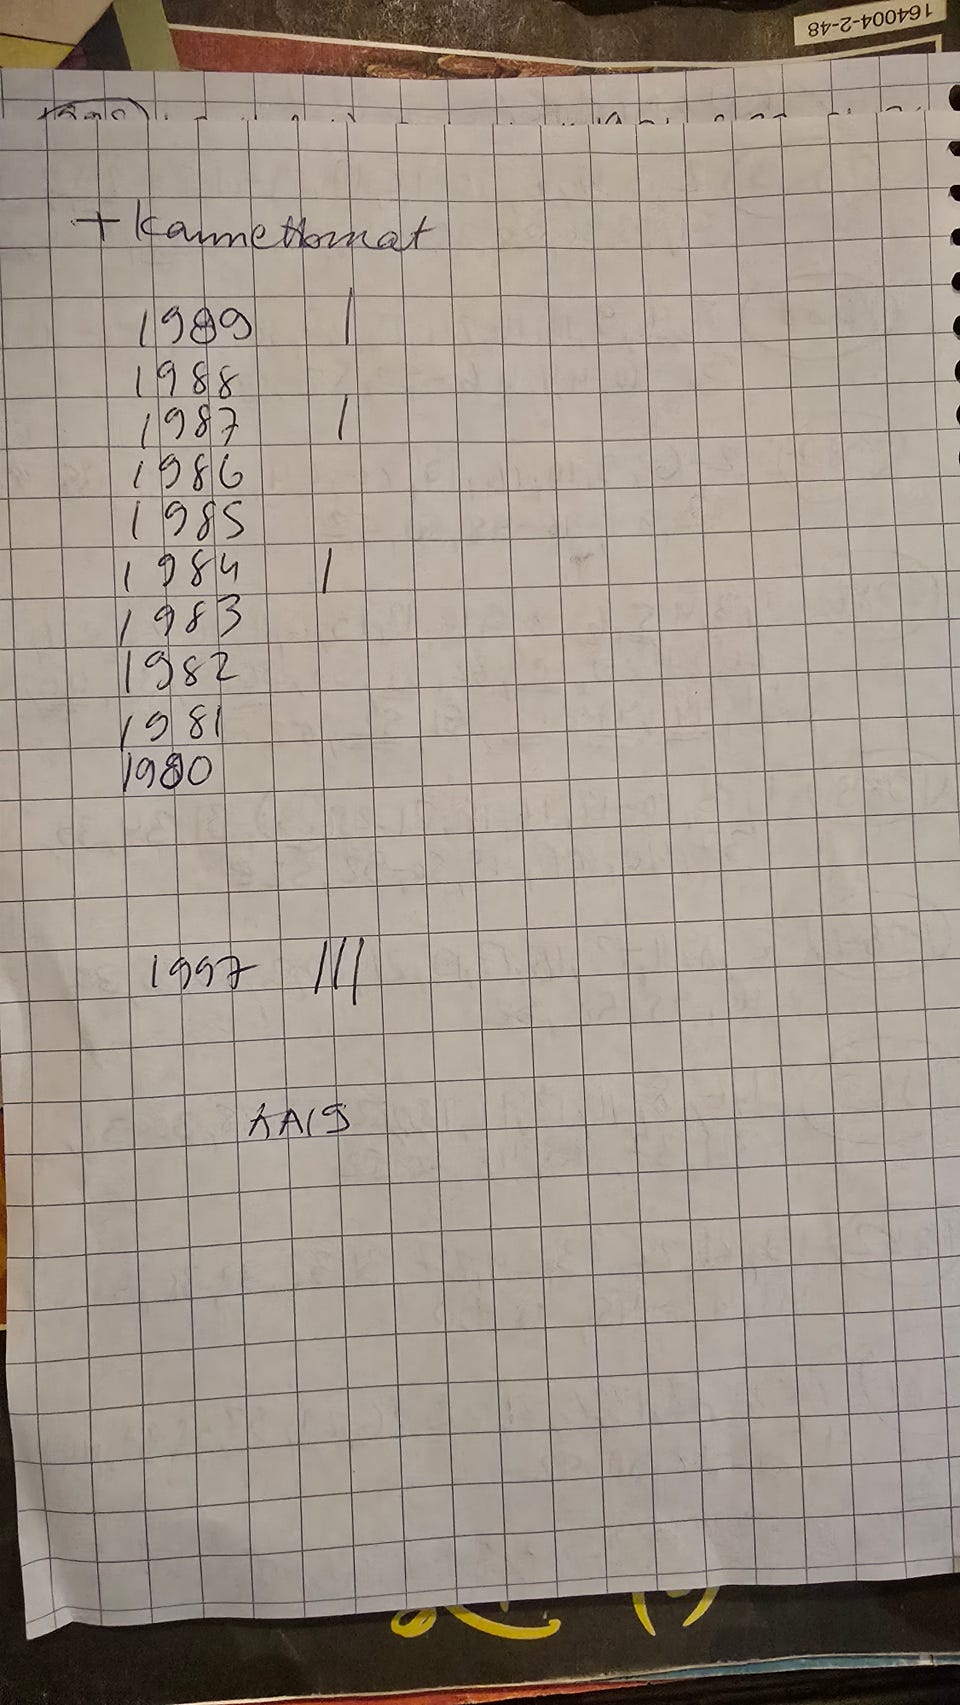 164004-2-48
+ kannettomat
1989 |
1988
1987 |
1986
1985
1984 |
1983
1982
1981
1980
1997 |||
KAIS